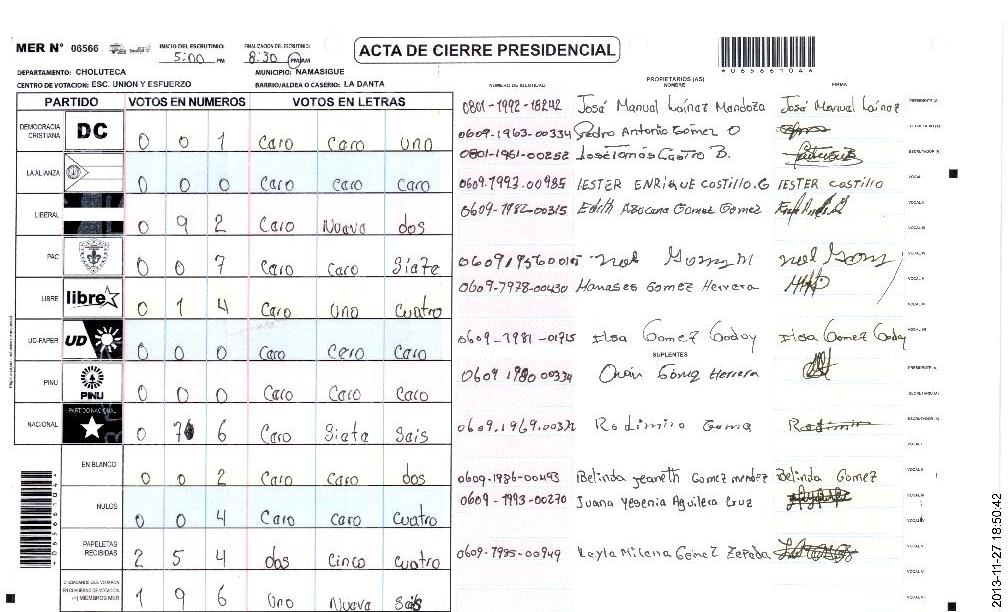 MER N° 06566
INICIO DEL ESCRUTINIO: 5:00 PM
FINALIZACION DEL ESCRUTINIO: 8:30 PM/AM
ACTA DE CIERRE PRESIDENCIAL
DEPARTAMENTO: CHOLUTECA
MUNICIPIO: NAMASIGUE
CENTRO DE VOTACION: ESC. UNION Y ESFUERZO
BARRIO/ALDEA O CASERIO: LA DANTA
PARTIDO VOTOS EN NUMEROS VOTOS EN LETRAS
DEMOCRACIA CRISTIANA DC 0 0 1 Caro Caro uno
LA ALIANZA 0 0 0 Caro Caro Caro
LIBERAL 0 9 2 Caro Nueva dos
PAC 0 0 7 Caro Caro Siate
LIBRE libre 0 1 4 Caro Uno Cuatro
UD-FAPER UD 0 0 0 Caro Cero Caro
PINU PINU 0 0 0 Caro Caro Caro
NACIONAL PARTIDO NACIONAL 0 7 6 Caro Siata Sais
EN BLANCO 0 0 2 Caro Caro dos
NULOS 0 0 4 Caro Caro Cuatro
PAPELETAS RECIBIDAS 2 5 4 dos Cinco Cuatro
CIUDADANOS QUE VOTARON EN CUADERNO DE VOTACION (+) MIEMBROS MER 1 9 6 Uno Nueva Sais
NUMERO DE IDENTIDAD PROPIETARIOS (AS) NOMBRE FIRMA
0801-1992-18242 José Manuel Laínez Mendoza José Manuel Laínez PRESIDENTE (A)
0609-1963-00334 Pedro Antonio Gómez O SECRETARIO (A)
0801-1961-00252 José Tomás Castro B. ESCRUTADOR (A)
0609-1993-00985 IESTER ENRIQUE CASTILLO.G IESTER CASTILLO VOCAL I
0609-1982-00315 Edith Azucena Gomez Gomez VOCAL II
VOCAL III
VOCAL IV
0609-7978-00430 Manases Gomez Herrera VOCAL V
VOCAL VI
0609-1981-01715 Ilsa Gomez Godoy Ilsa Gomez Goday VOCAL VII
SUPLENTES
0609 1980 00334 Gómez Herrera PRESIDENTE (A)
SECRETARIO (A)
0609.1969.00372 Rodimiro Goma ESCRUTADOR (A)
VOCAL I
0609-1986-00493 Belinda Jeaneth Gomez mendez Belinda Gomez VOCAL II
0609-1993-00270 Juana Yesenia Aguilera Cruz VOCAL III
VOCAL IV
0609-7985-00949 Keyla Milena Gomez Zepeda VOCAL V
VOCAL VI
2013-11-27 18:50:42